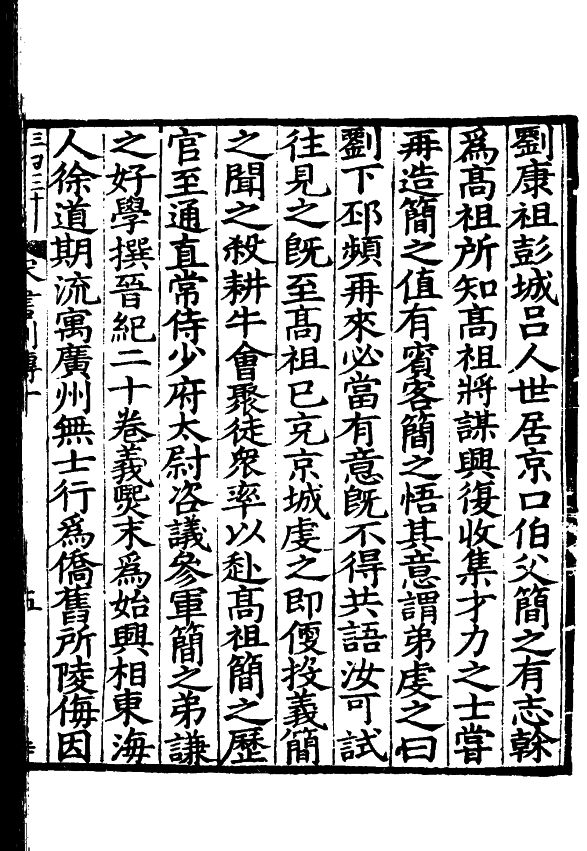 劉康祖彭城呂人世居京口伯父簡之有志榦
爲髙祖所知髙祖將謀興復收集才力之士甞
再造簡之值有賔客簡之悟其意謂弟虔之曰
劉下邳頻再來必當有意旣不得共語汝可試
徃見之旣至髙祖已克京城虔之即便投義簡
之聞之殺耕牛會聚徒衆率以赴髙祖簡之歷
官至通直常侍少府太尉咨議參軍簡之弟謙
之好學撰晉紀二十卷義熈末爲始興相東海
人徐道期流寓廣州無士行爲僑舊所陵侮因